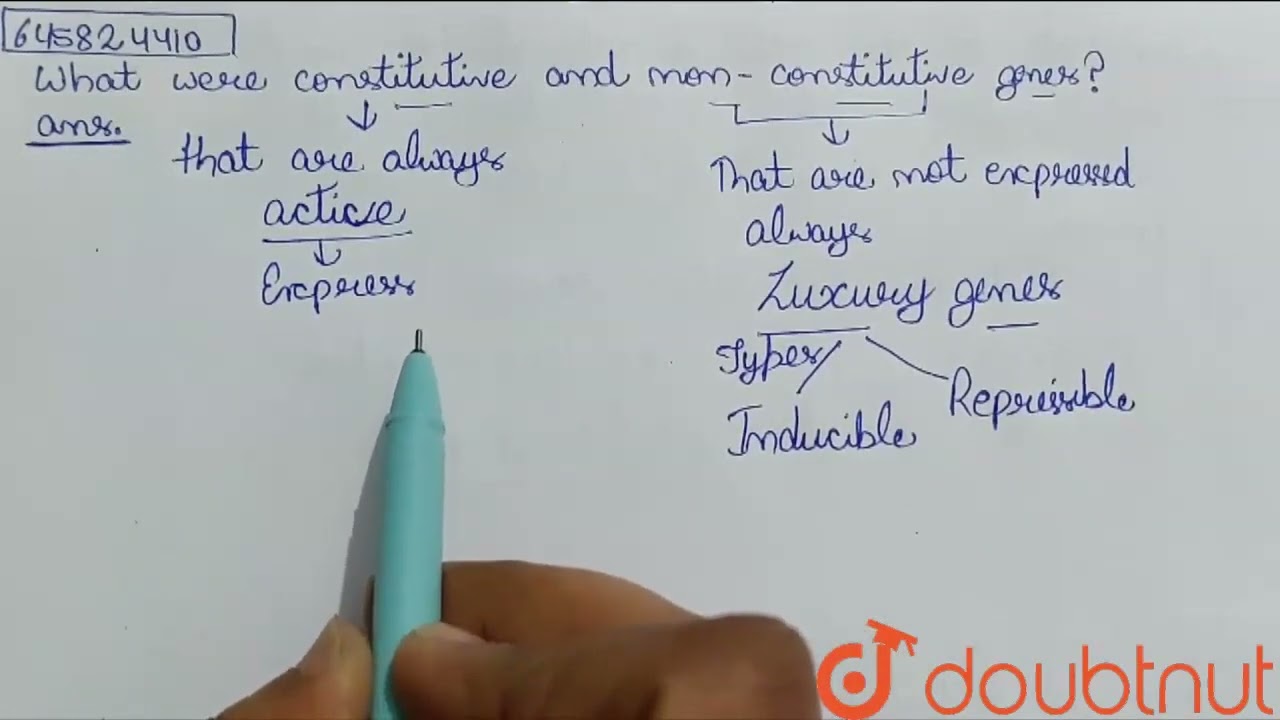 645824410
What were constitutive and non-constitutive genes?
ans.
that are always
active
Express
That are not expressed
always
Luxury genes
Types
Inducible
Repressible
doubtnut